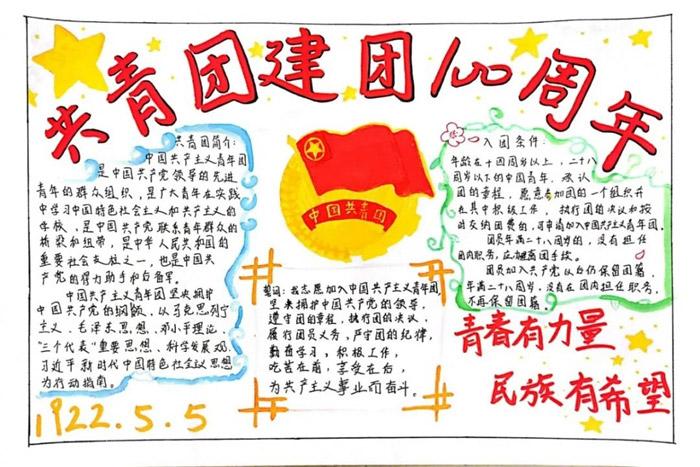 共青团建团100周年
共青团简介:
中国共产主义青年团
是中国共产党领导的先进
青年的群众组织，是广大青年在实践
中学习中国特色社会主义和共产主义的
学校，是中国共产党联系青年群众的
桥梁和纽带，是中华人民共和国的
重要社会支柱之一，也是中国共
产党的得力助手和后备军。
中国共产主义青年团坚决拥护
中国共产党的纲领，以马克思列宁
主义、毛泽东思想、邓小平理论、
"三个代表"重要思想、科学发展观、
习近平新时代中国特色社会主义思想
为行动指南。
1922.5.5
中国共青团
誓词：我志愿加入中国共产主义青年团，
坚决拥护中国共产党的领导，
遵守团的章程，执行团的决议，
履行团员义务，严守团的纪律，
勤奋学习，积极工作，
吃苦在前，享受在后，
为共产主义事业而奋斗。
入团条件:
年龄在十四周岁以上，二十八
周岁以下的中国青年，承认
团的章程，愿意参加团的一个组织并
在其中积极工作、执行团的决议和按
时交纳团费的，可申请加入中国共产主义青年团。
团员年满二十八周岁的，没有担任
团内职务，应该离团手续。
团员加入共产党以后仍保留团籍，
年满二十八周岁，没有在团内担任职务，
不再保留团籍。
青春有力量
民族有希望